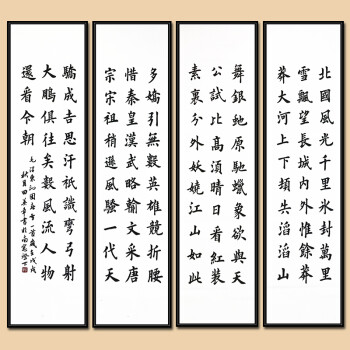 北國風光千里氷封萬里
雪飄望長城内外惟餘莽
莽大河上下頓失滔滔山
舞銀蛇原馳蠟象欲與天
公試比高須晴日看紅裝
素裹分外妖嬈江山如此
多嬌引無數英雄競折腰
惜秦皇漢武略輸文采唐
宗宋祖稍遜風騷一代天
驕成吉思汗祇識彎弓射
大鵰俱往矣數風流人物
還看今朝
毛澤東沁園春雪一首歲在戊戌
秋月田英章書於南窗燈下